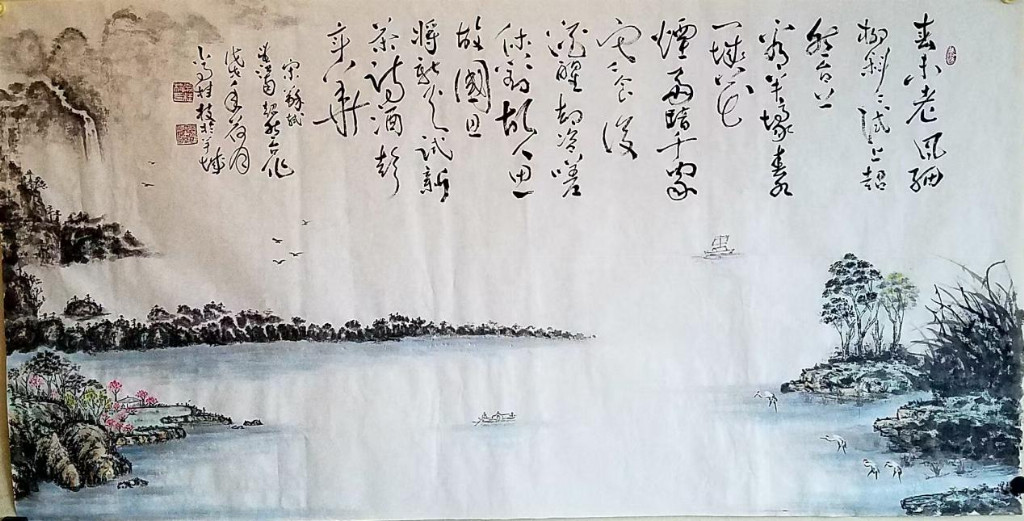 春未老風細
柳斜斜試上超
然台上
看半壕春水
一城花
煙雨暗千家
寒食後
酒醒却咨嗟
休對故人思
故國且
將新火試新
茶詩酒趁
年華
宋蘇軾
望江南超然台作
戊戌年荷月
村枝於羊城